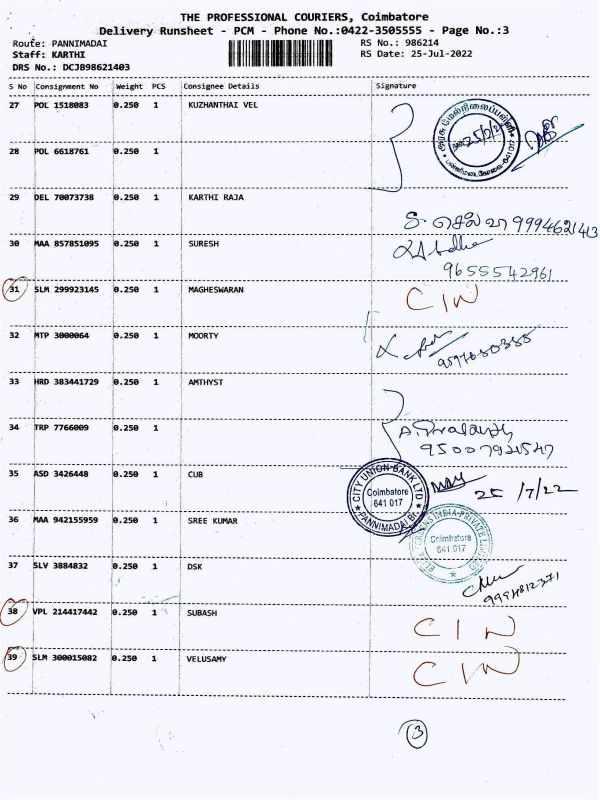 THE PROFESSIONAL COURIERS, Coimbatore
Delivery Runsheet - PCM - Phone No.:0422-3505555 - Page No.:3
Route: PANNIMADAI RS No.: 986214
Staff: KARTHI RS Date: 25-Jul-2022
DRS No.: DCJB98621403
S No Consignment No Weight PCS Consignee Details Signature
27 POL 1518083 0.250 1 KUZHANTHAI VEL
அரசு மேல்நிலைப்பள்ளி
28 POL 6618761 0.250 1
29 DEL 70073738 0.250 1 KARTHI RAJA
9994621413
30 MAA 857851095 0.250 1 SURESH
9655542961
31 SLM 299923145 0.250 1 MAGHESWARAN CIN
32 MTP 3000064 0.250 1 MOORTY
33 HRD 383441729 0.250 1 AMTHYST
34 TRP 7766009 0.250 1
A. Prasanth
35 ASD 3426448 0.250 1 CUB
CITY UNION BANK LTD
Coimbatore
641 017
PANNIMADAI Br.
25/7/22
36 MAA 942155959 0.250 1 SREE KUMAR
Coimbatore
641 017
37 SLV 3884832 0.250 1 DSK
38 VPL 214417442 0.250 1 SUBASH CIN
39 SLM 300015082 0.250 1 VELUSAMY CIN
3